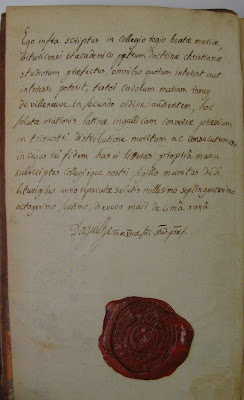 Ego infra scriptus in collegio regio beatæ mariæ,
bituricensi et academico patrum doctrinæ christianæ
studiorum præfectus, omnibus quorum interest aut
interesse poterit, testor Carolum mariam
de villeneuve, in secundo ordine audentem,
solutæ orationis latinæ in gallicam conversæ præmium
in trimestri distributione meritum ac consecutum esse
in cujus rei fidem has ei litteras propria manu
subscriptas collegiique nostri sigillo munitas dedi.
biturigibus anno reparatæ salutis millesimo septingentesimo
octogesimo septimo, die vero maii decimâ nonâ